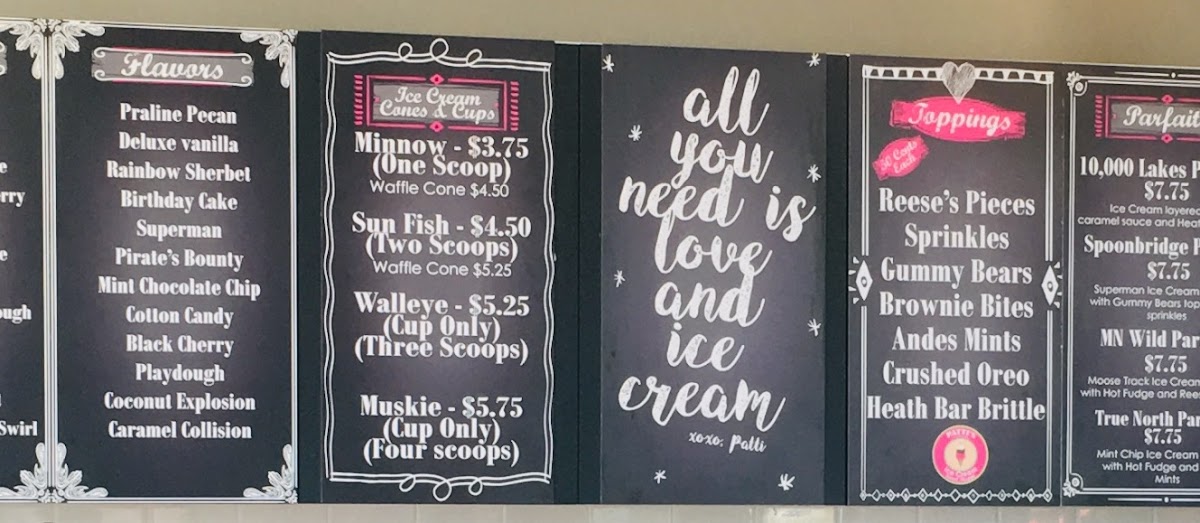 e
rry
e
ough
Swirl
Flavors
Praline Pecan
Deluxe vanilla
Rainbow Sherbet
Birthday Cake
Superman
Pirate's Bounty
Mint Chocolate Chip
Cotton Candy
Black Cherry
Playdough
Coconut Explosion
Caramel Collision
Ice Cream
Cones & Cups
Minnow - $3.75
(One Scoop)
Waffle Cone $4.50
Sun Fish - $4.50
(Two Scoops)
Waffle Cone $5.25
Walleye - $5.25
(Cup Only)
(Three Scoops)
Muskie - $5.75
(Cup Only)
(Four scoops)
all
you
need is
love
and
ice
cream
xoxo, Patti
Toppings
50 Cents
Each
Reese's Pieces
Sprinkles
Gummy Bears
Brownie Bites
Andes Mints
Crushed Oreo
Heath Bar Brittle
PATTI'S
Parfait
10,000 Lakes P
$7.75
Ice Cream layered
caramel sauce and Hea
Spoonbridge
$7.75
Superman Ice Cream
with Gummy Bears top
sprinkles
MN Wild Par
$7.75
Moose Track Ice Crea
with Hot Fudge and Ree
True North Pa
$7.75
Mint Chip Ice Cream
with Hot Fudge and
Mints